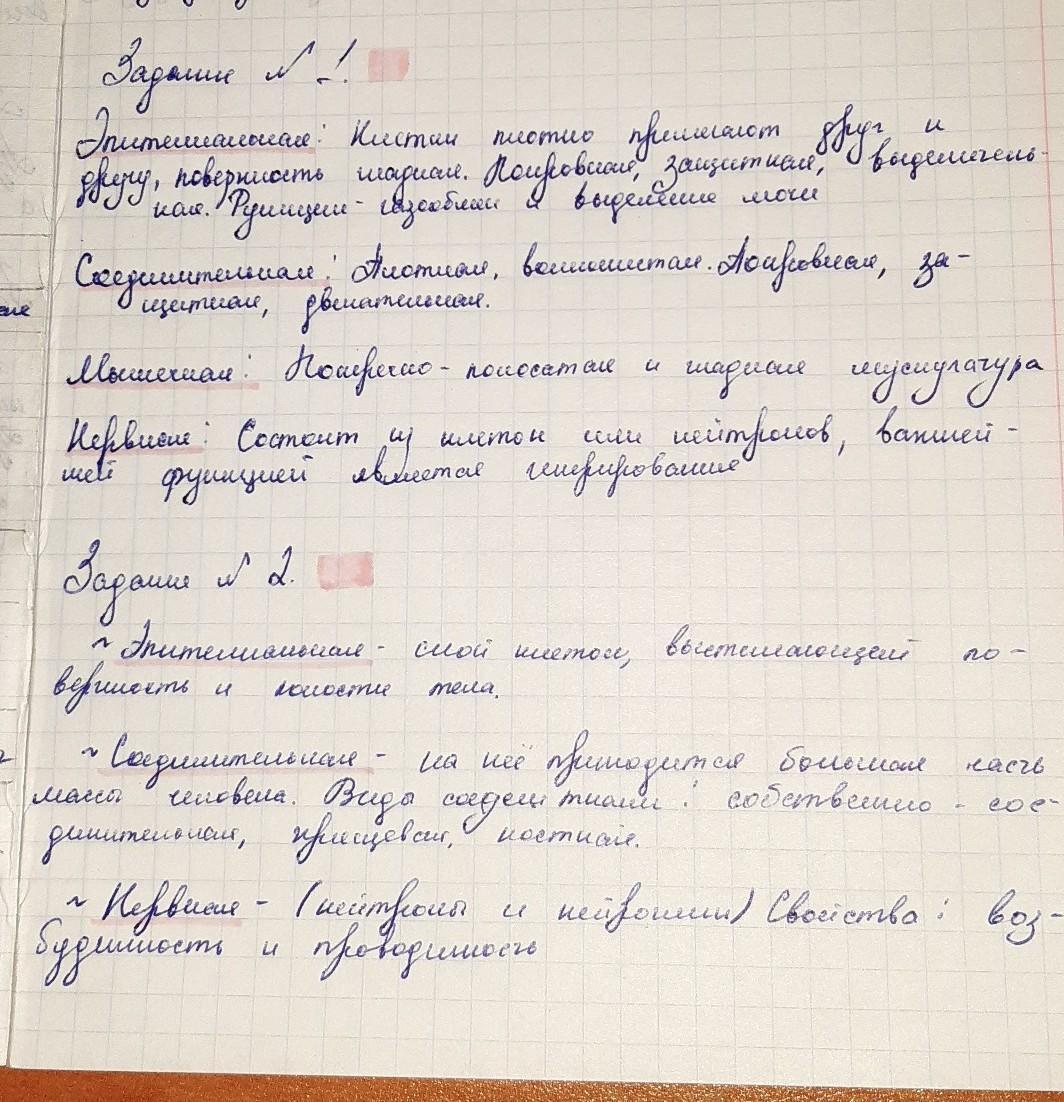 Задание № 1.
Эпителиальная: Клетки плотно прилегают друг к
другу, поверхность гладкая. Покровная, защитная, выделитель-
ная. Функции - газообмен и выделение мочи
Соединительная: Плотная, волокнистая. Покровная, за-
щитная, двигательная.
Мышечная: Поперечно-полосатая и гладкая мускулатура
Нервная: Состоит из клеток или нейтронов, важней-
шей функцией является генерирование
Задание № 2.
~ Эпителиальная - слой клеток, выстилающий по-
верхность и полости тела.
~ Соединительная - на неё приходится большая часть
массы человека. Виды соедин ткани: собственно - сое-
динительная, хрящевая, костная.
~ Нервная - (нейтроны и нейроглии) Свойства: воз-
будимость и проводимость